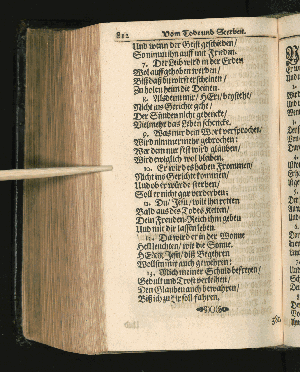 812 Vom Tod und Sterben.
Und wenn der Geist geschieden/
So nimm ihn auff mit Frieden.
7. Der Leib wird in der Erden
Wol auffgehoben werden/
Biß daß du wirst erscheinen/
Zu holen heim die Deinen.
8. Alsdenn mir/ HErr/ beystehe/
Nicht ins Gerichte gehe/
Der Sünden nicht gedencke/
Vielmehr das Leben schencke.
9. Was mir dein Wort versprochen/
Wird nimmermehr gebrochen:
Wer dem nur fest wird gläuben/
Wird ewiglich wol bleiben.
10. Er wird des bösen Frommen/
Nicht ins Gerichte kommen/
Und ob er würde sterben/
Soll er nicht gar verderben:
12. Du/ JEsu/ wilt ihn retten
Bald aus des Todes Ketten/
Dein Freuden-Reich ihm geben
Und mit dir lassen leben.
Da wird er in der Wonne
Hell leuchten/ wie die Sonne.
HErr JEsu/ diß Begehren
Wollst mir auch gewehren:
Mich meiner Schuld befreyen/
Gedult und Trost verleihen/
Den Glauben auch bewahren/
Biß ich zu dir soll fahren.